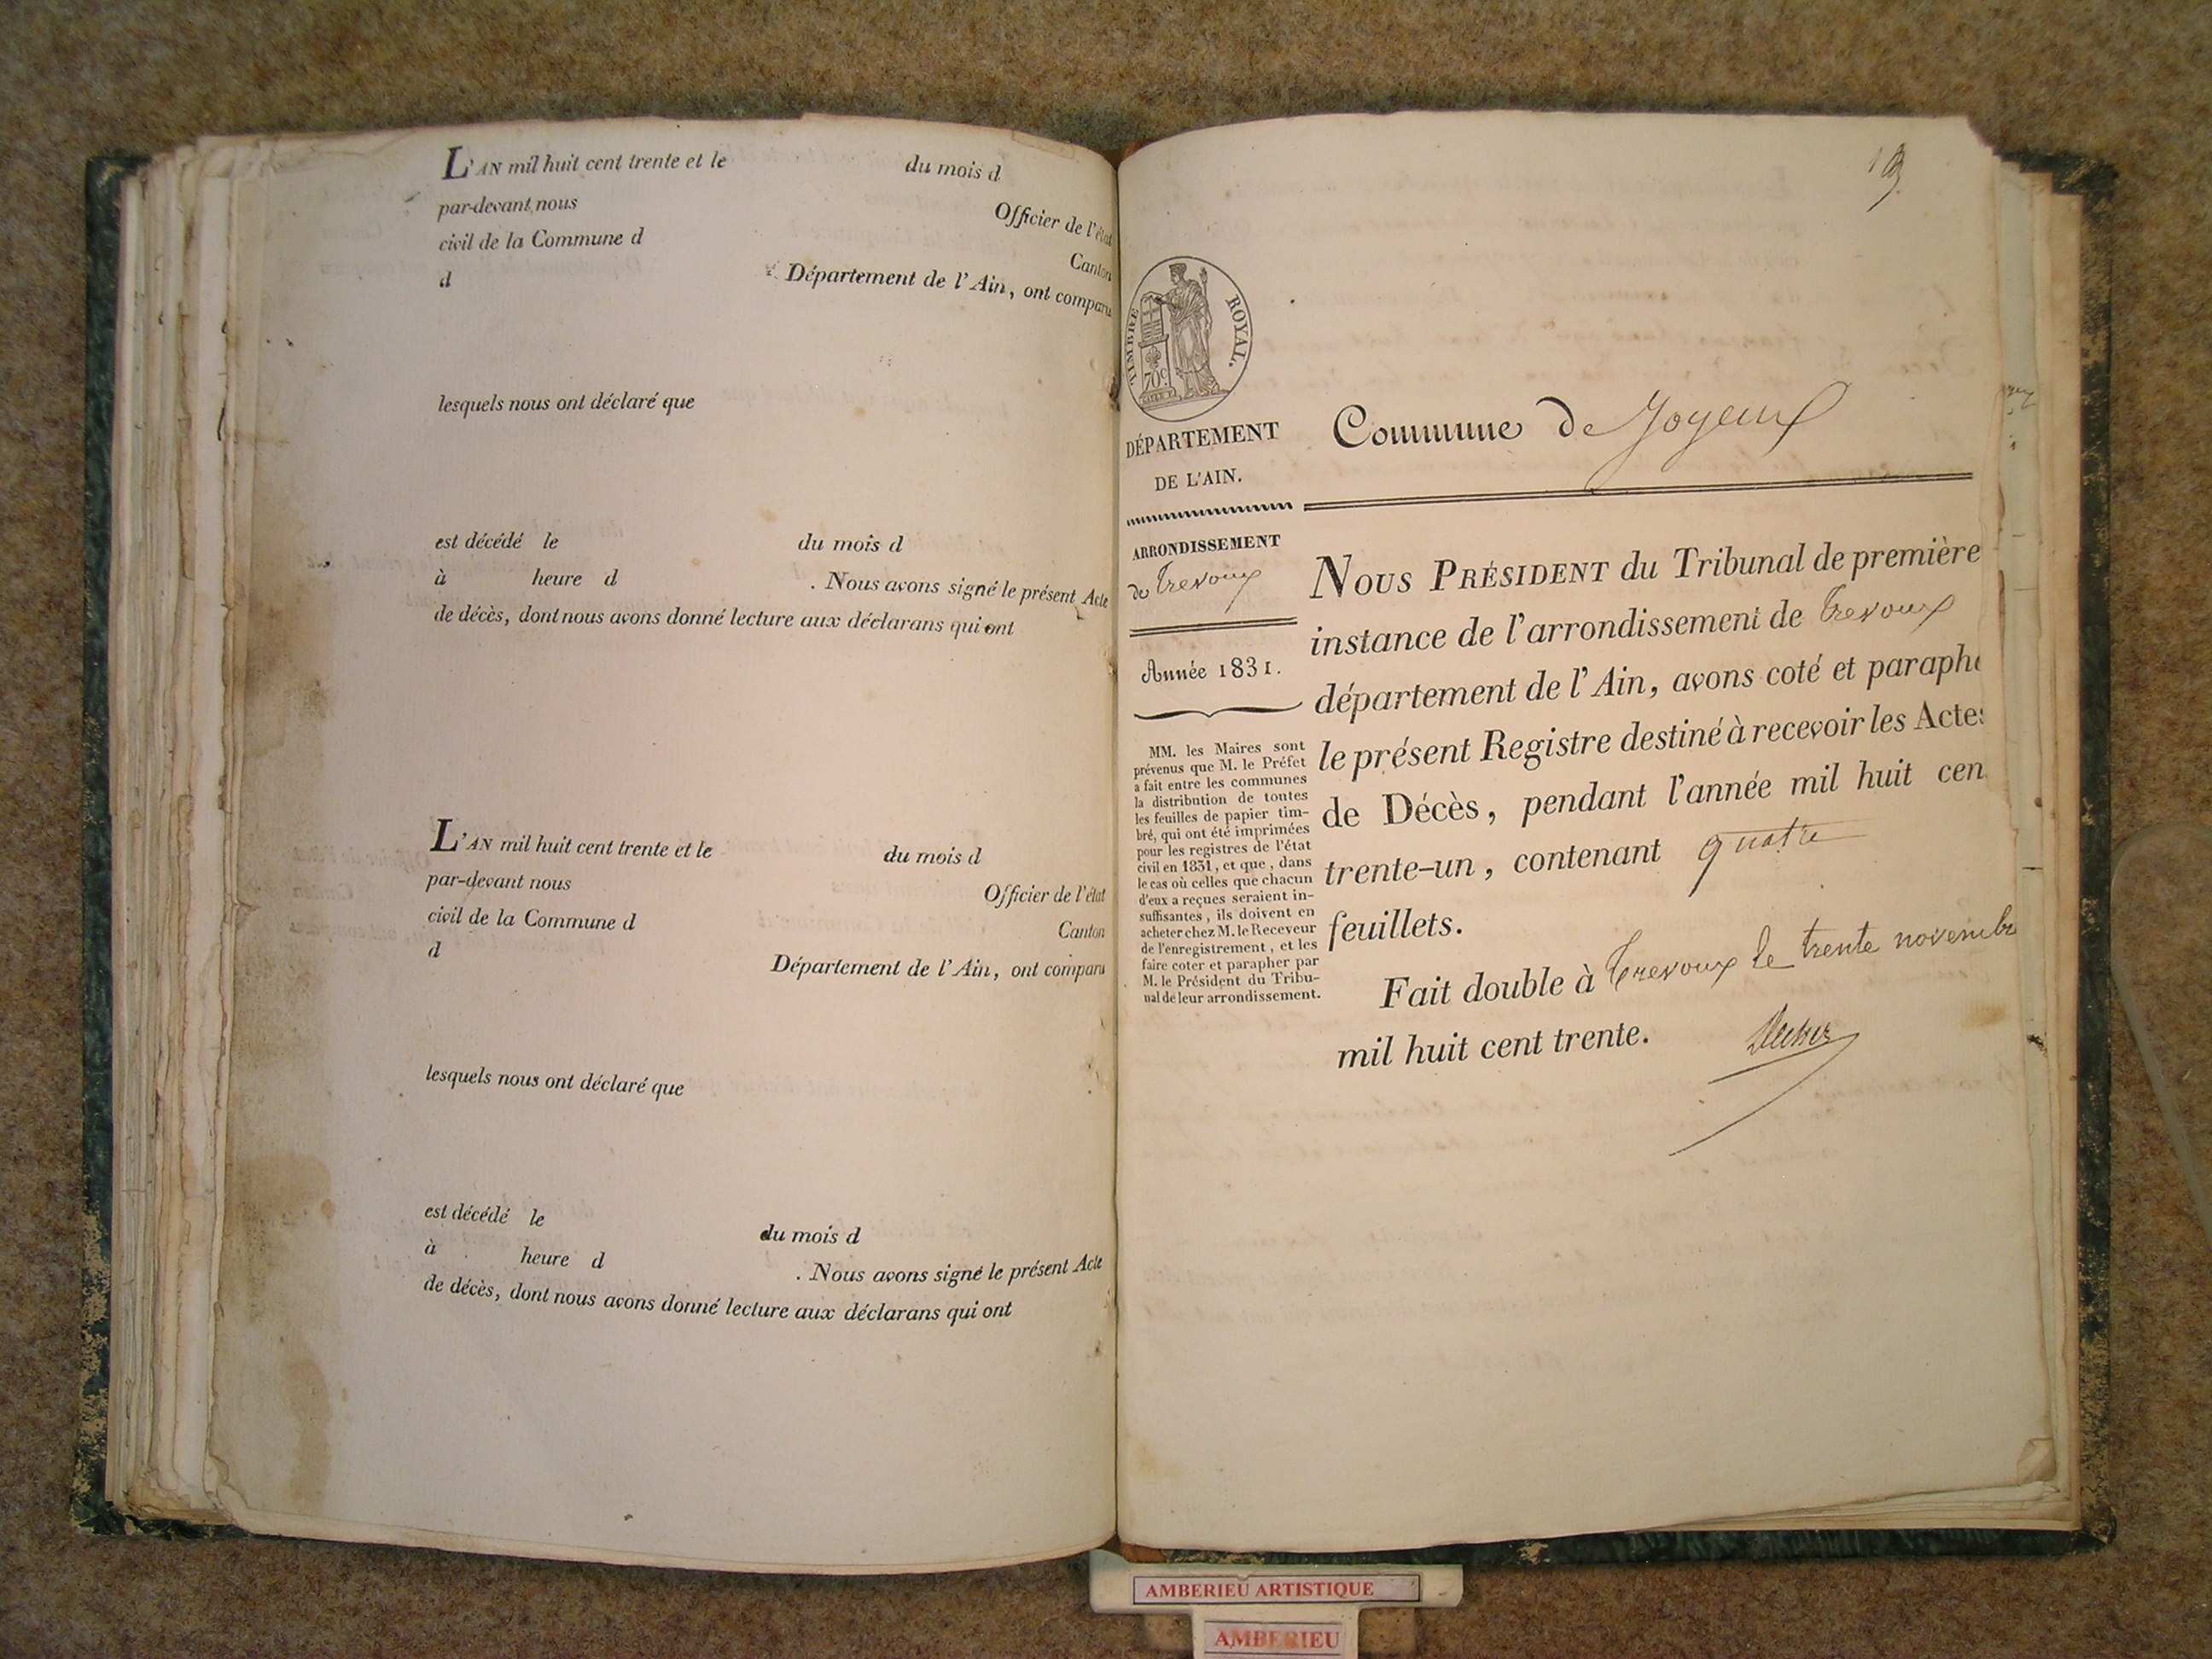 L'AN mil huit cent trente et le du mois d
par-devant nous Officier de l'état
civil de la Commune d Canton
d Département de l'Ain, ont comparu
lesquels nous ont déclaré que
est décédé le du mois d
à heure d . Nous avons signé le présent Acte
de décès, dont nous avons donné lecture aux déclarans qui ont
L'AN mil huit cent trente et le du mois d
par-devant nous Officier de l'état
civil de la Commune d Canton
d Département de l'Ain, ont comparu
lesquels nous ont déclaré que
est décédé le du mois d
à heure d . Nous avons signé le présent Acte
de décès, dont nous avons donné lecture aux déclarans qui ont
TIMBRE ROYAL.
70c
DÉPARTEMENT
DE L'AIN.
ARRONDISSEMENT
de Trevoux
Année 1831.
MM. les Maires sont
prévenus que M. le Préfet
a fait entre les communes
la distribution de toutes
les feuilles de papier tim-
bré, qui ont été imprimées
pour les registres de l'état
civil en 1831, et que, dans
le cas où celles que chacun
d'eux a reçues seraient in-
suffisantes, ils doivent en
acheter chez M. le Receveur
de l'enregistrement, et les
faire coter et parapher par
M. le Président du Tribu-
nal de leur arrondissement.
Commune de Joyeux
NOUS PRÉSIDENT du Tribunal de première
instance de l'arrondissement de Trevoux
département de l'Ain, avons coté et paraphé
le présent Registre destiné à recevoir les Actes
de Décès, pendant l'année mil huit cen
trente-un, contenant quatre
feuillets.
Fait double à Trevoux le trente novembre
mil huit cent trente.
AMBERIEU ARTISTIQUE
AMBERIEU